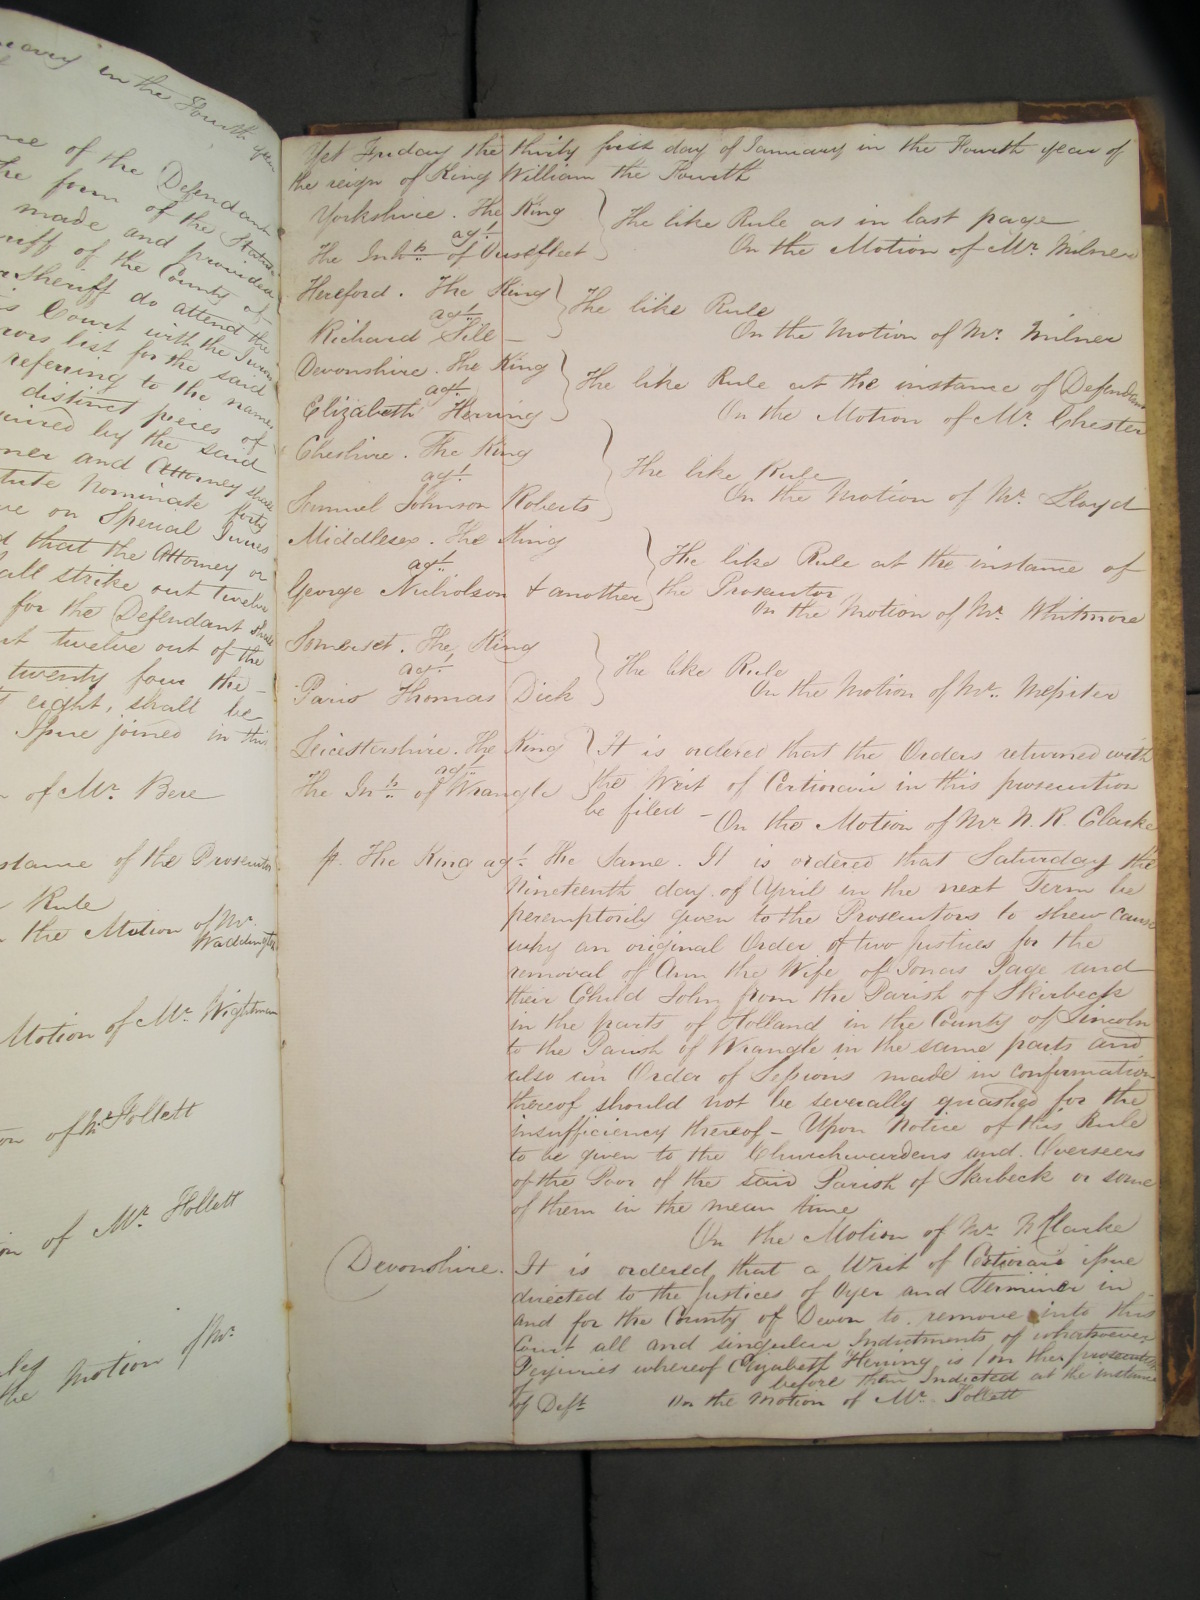 in the Fourth year
of the Defendant
the form of the Statute
made and provided
Sheriff of the County of
Sheriff do attend the
Court with the Jurors
list for the said
referring to the names
distinct pieces of
by the said
and Attorney shall
Nominate forty
on Special Juries
that the Attorney or
all strike out twelve
for the Defendant shall
twelve out of the
twenty four the
eight, shall be
Issue joined in this
of Mr. Bere
of the Prosecutor
Rule
the Motion of Mr.
Waddington
Motion of Mr. Wightman
of Mr Follett
of Mr. Follett
Motion of Mr.
Yet Friday the thirty first day of January in the Fourth year of
the reign of King William the Fourth
Yorkshire. The King
agt.
The Inhts. of Ousefleet
The like Rule as in last page
On the Motion of Mr. Milner
Hereford. The King
agt.
Richard Sill
The like Rule
On the Motion of Mr. Milner
Devonshire. The King
agt.
Elizabeth Herring
The like Rule at the instance of Defendant
On the Motion of Mr. Chester
Cheshire. The King
agt.
Samuel Johnson Roberts
The like Rule
On the Motion of Mr. Lloyd
Middlesex. The King
agt.
George Nicholson & another
The like Rule at the instance of
the Prosecutor
On the Motion of Mr. Whitmore
Somerset. The King
agt.
Paris Thomas Dick
The like Rule
On the Motion of Mr. Messiter
Leicestershire. The King
agt.
The Inhts. of Wrangle
It is ordered that the Orders returned with
the Writ of Certiorari in this prosecution
be filed -
On the Motion of Mr N. R. Clarke
The King agt. the Same. It is ordered that Saturday the
Nineteenth day of April in the next Term be
peremptorily given to the Prosecutors to shew cause
why an original Order of two justices for the
removal of Ann the Wife of Jonas Page and
their Child John from the Parish of Skirbeck
in the parts of Holland in the County of Lincoln
to the Parish of Wrangle in the same parts and
also an Order of Sessions made in confirmation
thereof should not be severally quashed for the
insufficiency thereof - Upon Notice of this Rule
to be given to the Churchwardens and Overseers
of the Poor of the said Parish of Skirbeck or some
of them in the mean time
On the Motion of Mr. N Clarke
Devonshire. It is ordered that a Writ of Certiorari issue
directed to the Justices of Oyer and Terminer in
and for the County of Devon to remove into this
Court all and singular Indictments of whatsoever
Perjuries whereof Elizabeth Herring is (on the prosecution
before them Indicted at the instance
of Deft. On the Motion of Mr. Follett